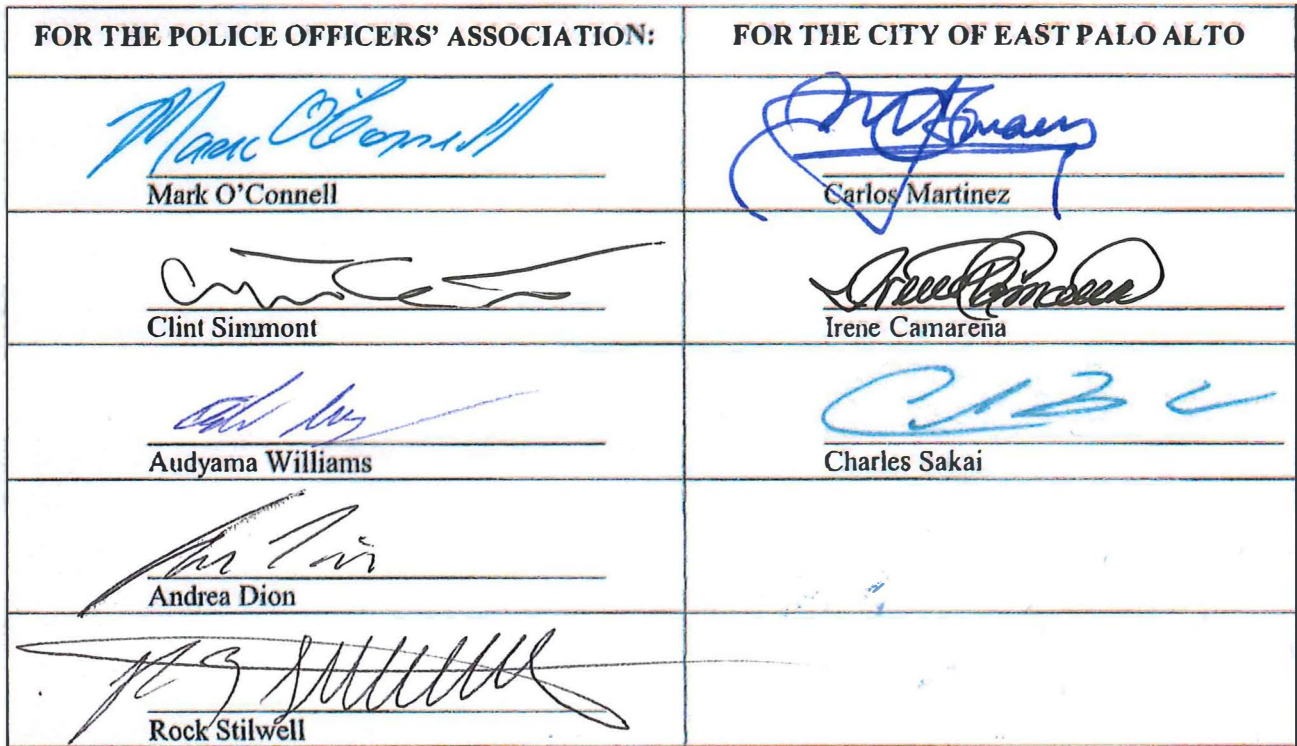 FOR THE POLICE OFFICERS' ASSOCIATION:
FOR THE CITY OF EAST PALO ALTO
Mark O'Connell
Mark O'Connell
Carlos Martinez
Clint Simmont
Irene Camarena
Audyama Williams
Charles Sakai
Andrea Dion
Rock Stilwell